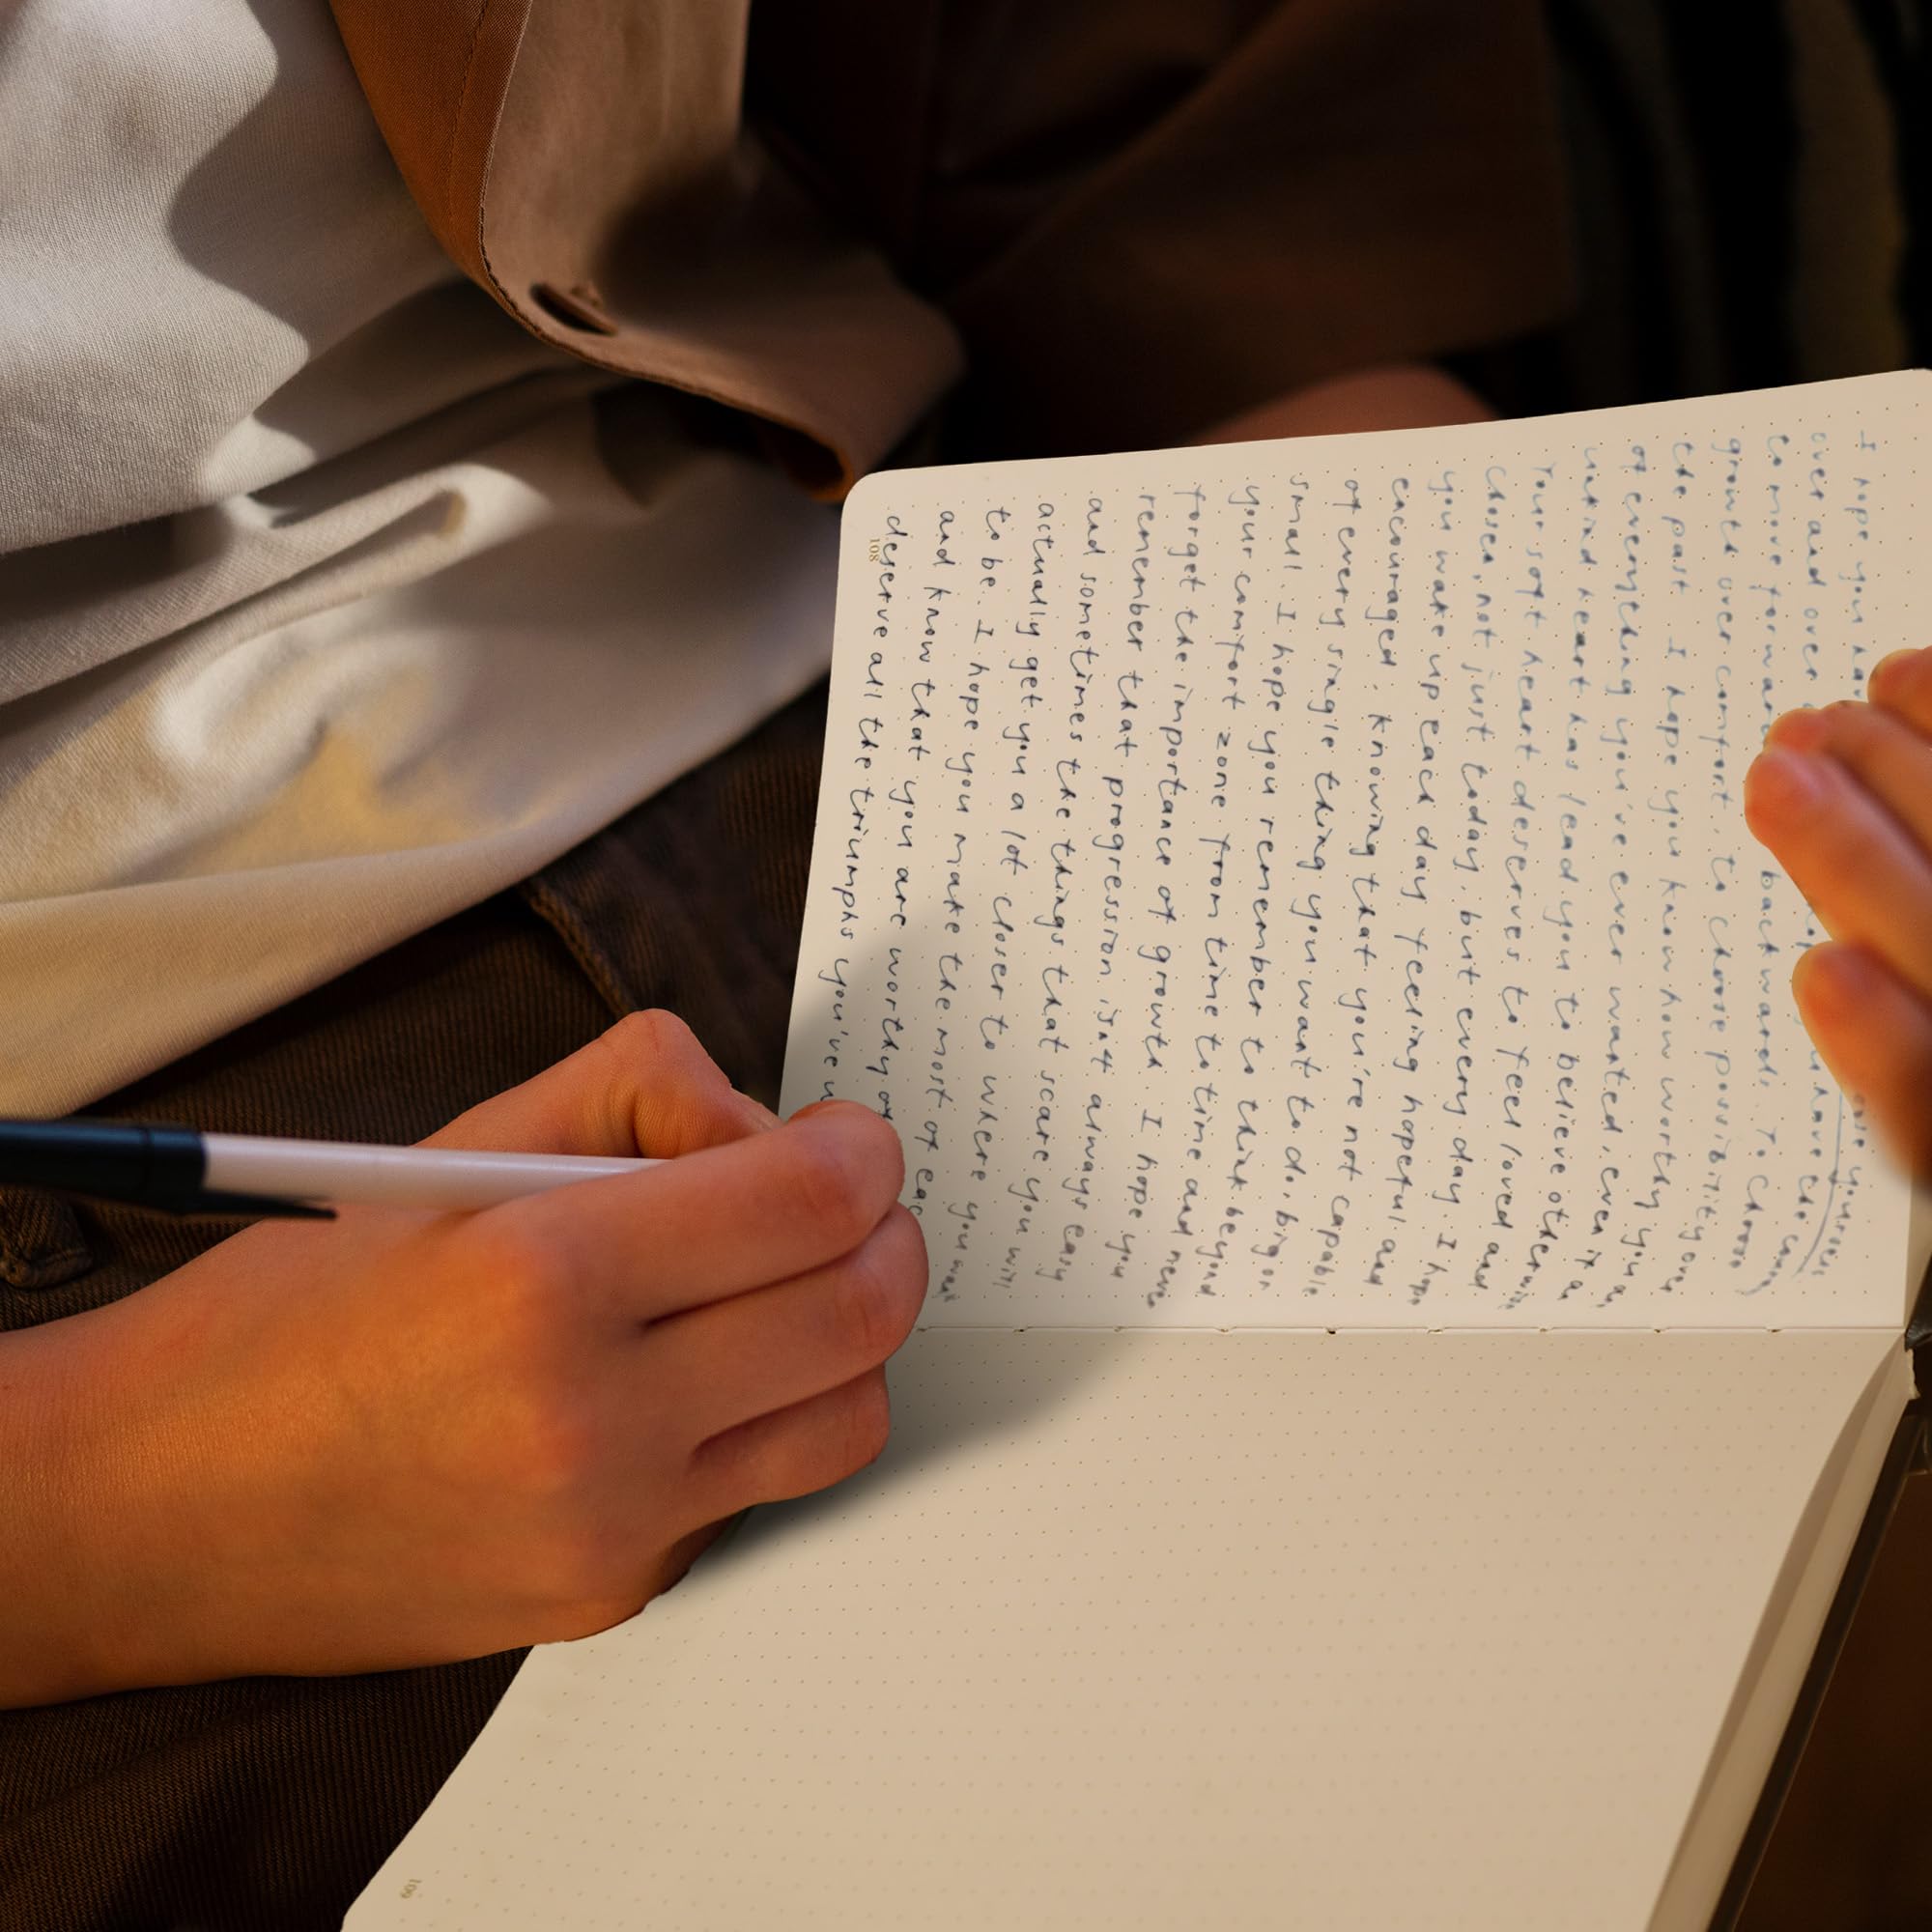 I hope you have
over and over you have the
to move forward backwards. To choose
growth over comfort, to choose possibility over
the past. I hope you know how worthy you a
of everything you've ever wanted, even if a
unkind heart has lead you to believe otherwise
Your soft heart deserves to feel loved and
chosen, not just today, but every day. I hope
you wake up each day feeling hopeful and
encouraged, knowing that you're not capable
of every single thing you want to do, big or
small. I hope you remember to think beyond
your comfort zone from time to time and never
forget the importance of growth. I hope you
remember that progression isn't always easy
and sometimes the things that scare you will
actually get you a lot closer to where you
to be. I hope you make the most of eac
and know that you are worthy of
deserve all the triumphs you've
108
109